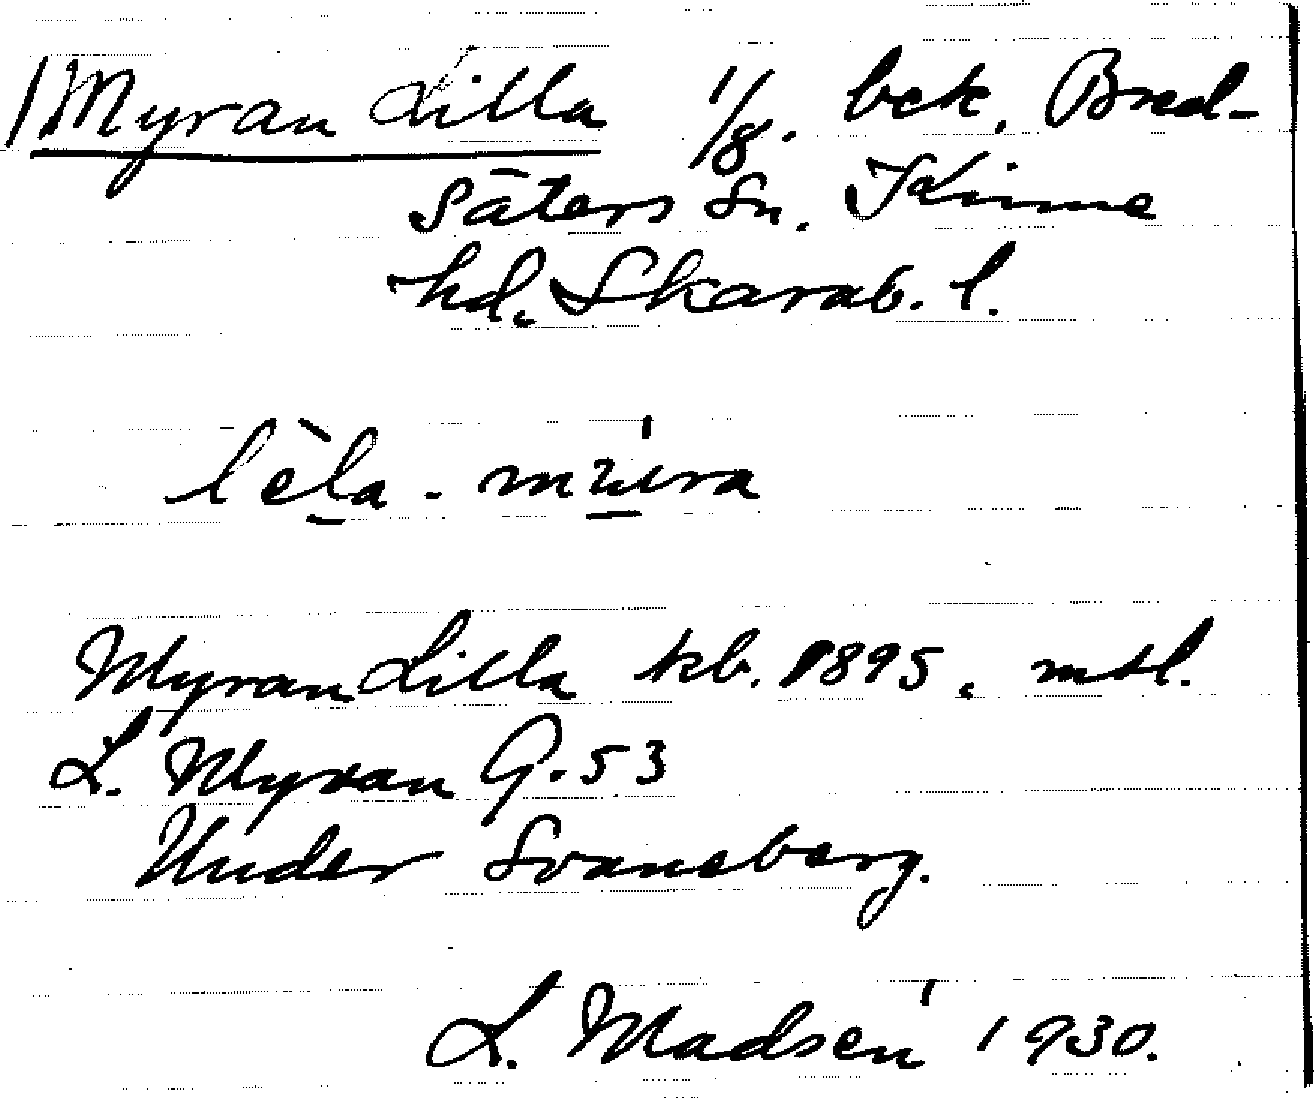 /Myran Lilla 1/8. bck. Bred-
säters sn. Kinne
hd. Skarab. l.
lèla - múra
Myran Lilla kb. 1895. mtl.
L. Myran G. 53
Under Svaneberg.
L. Madsén 1930.